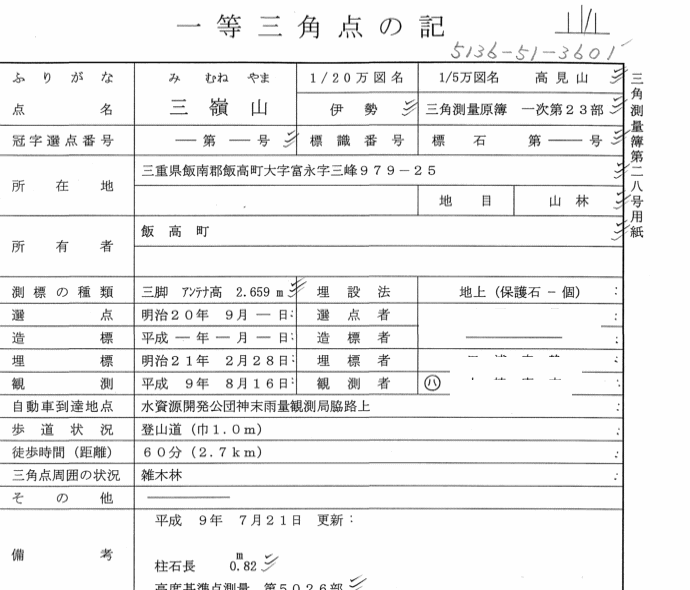 一等三角点の記
5136-51-3601
ふりがな みむねやま 1/20万図名 1/5万図名 高見山
点名 三嶺山 伊勢 三角測量原簿 一次第23部
冠字選点番号 ―第―号 標識番号 標石 第―号
所在地 三重県飯南郡飯高町大字富永字三峰979-25
地目 山林
所有者 飯高町
測標の種類 三脚 アンテナ高 2.659m 埋設法 地上(保護石-個)
選点 明治20年 9月 ―日 選点者
造標 平成 ―年 ―月 ―日 造標者 ―
埋標 明治21年 2月28日 埋標者
観測 平成 9年 8月16日 観測者 ㋩
自動車到達地点 水資源開発公団神末雨量観測局脇路上
歩道状況 登山道(巾1.0m)
徒歩時間(距離) 60分(2.7km)
三角点周囲の状況 雑木林
その他 ―
備考 平成 9年 7月21日 更新
柱石長 0.82m
高度基準点測量 第5026部
三角測量簿第二八号用紙